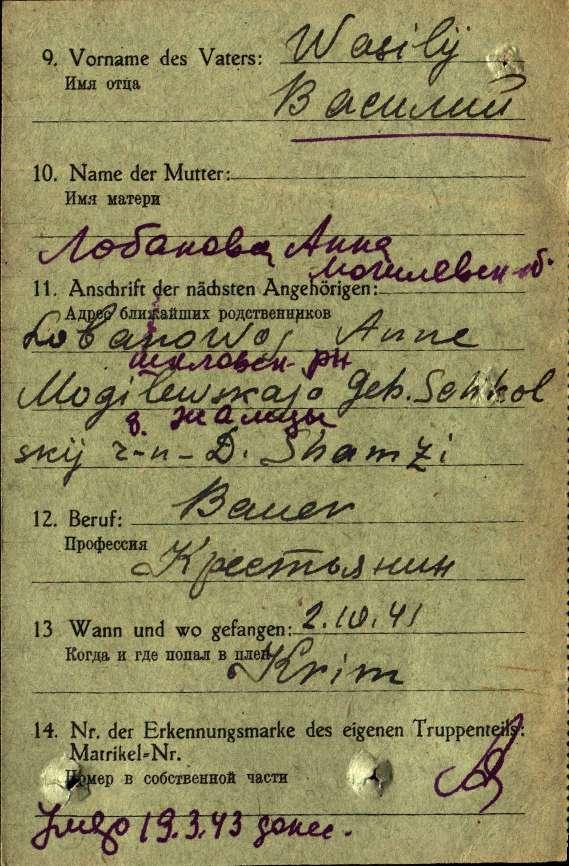 9. Vorname des Vaters: Wasilij
Имя отца
Василий
10. Name der Mutter:
Имя матери
Лобановa Анна
Могилевск. об.
11. Anschrift der nächsten Angehörigen:
Адрес ближайших родственников
Lobanowoj Anne
шкловск. рн
Mogilewskaja Geb. Schkol
д. Жамцы
skij r-n D. Shamzi
12. Beruf: Bauer
Профессия
Крестьянин
13 Wann und wo gefangen: 2.10.41
Когда и где попал в плен
Krim
14. Nr. der Erkennungsmarke des eigenen Truppenteils:
Matrikel=Nr.
Номер в собственной части
19.3.43 донес.